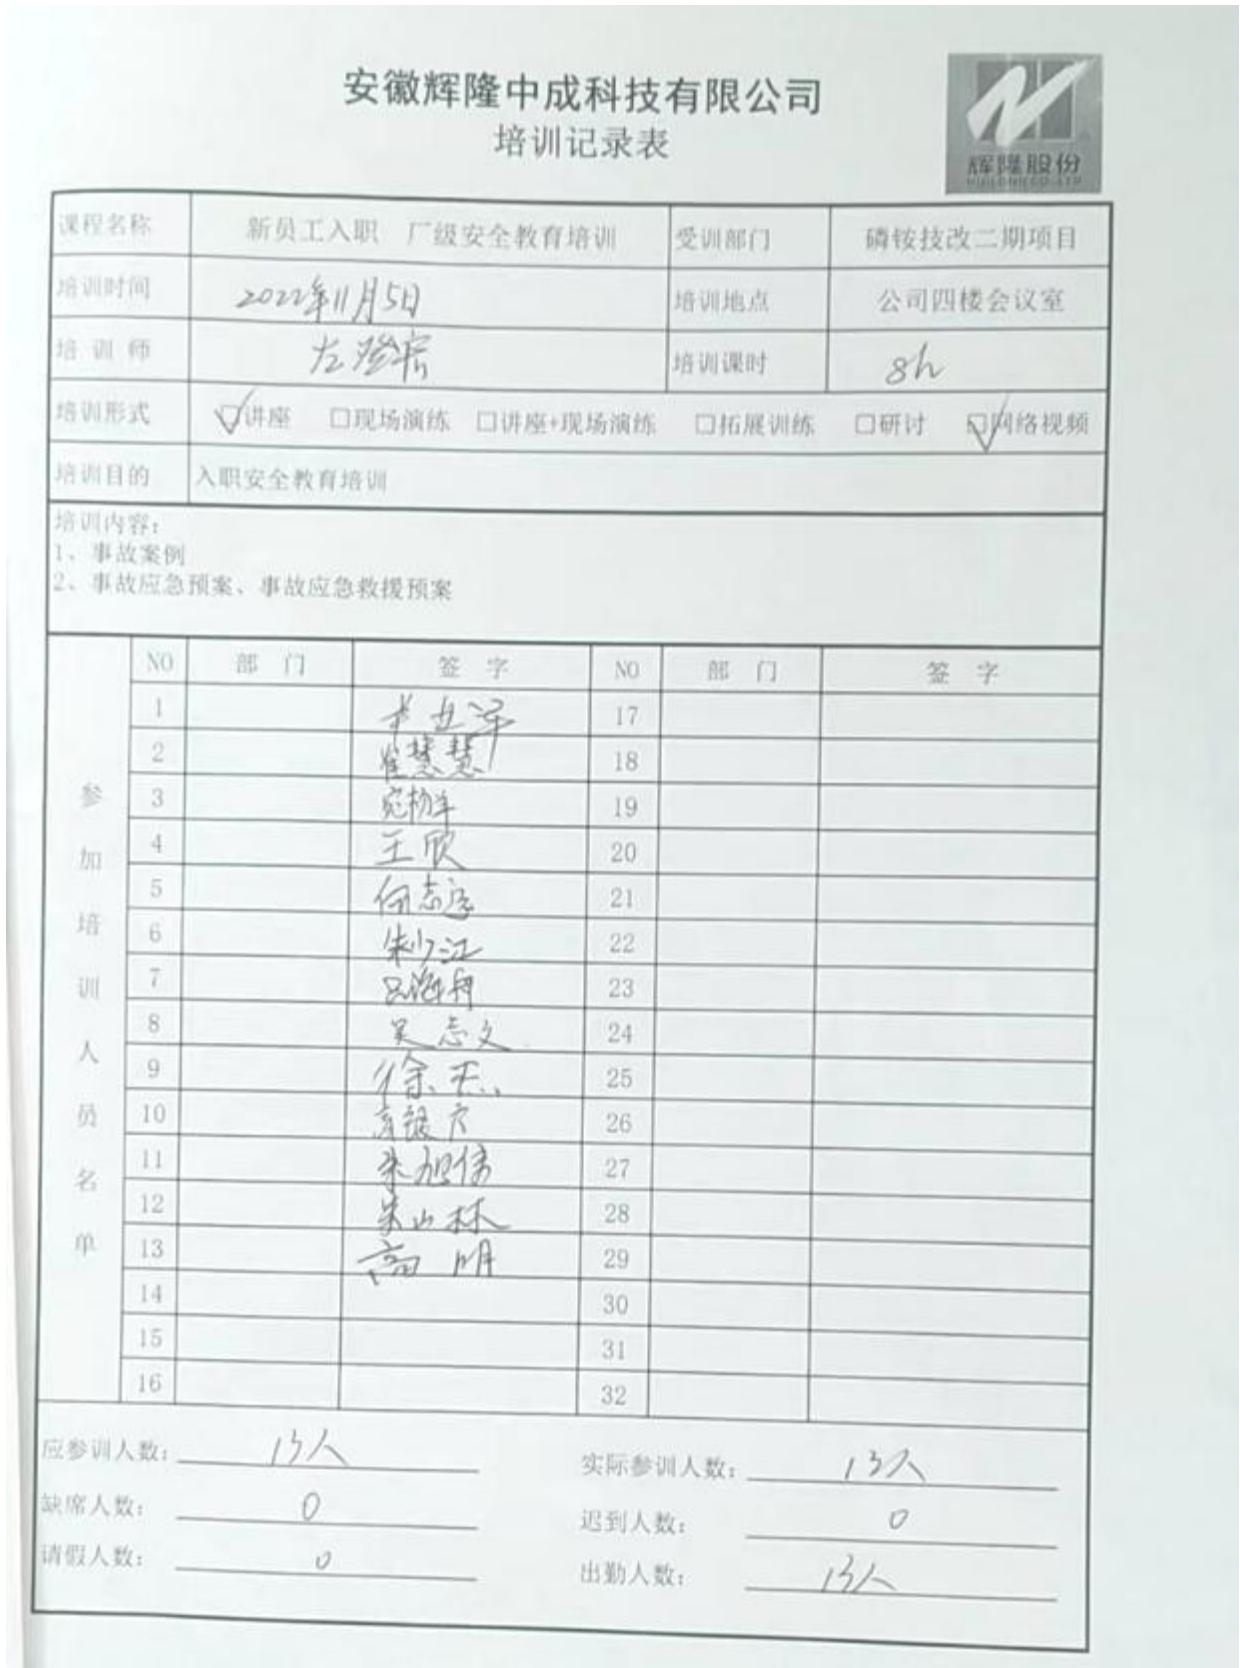 安徽辉隆中成科技有限公司
培训记录表
辉隆股份
课程名称 新员工入职 厂级安全教育培训 受训部门 磷铵技改二期项目
培训时间 2022年11月5日 培训地点 公司四楼会议室
培训师 培训课时 8h
培训形式 ☑讲座 □现场演练 □讲座+现场演练 □拓展训练 □研讨 ☑网络视频
培训目的 入职安全教育培训
培训内容：
1、事故案例
2、事故应急预案、事故应急救援预案
参加培训人员名单
NO 部门 签字 NO 部门 签字
1 17
2 崔慧慧 18
3 宛杨洋 19
4 王欣 20
5 何志 21
6 朱少江 22
7 吕海舟 23
8 吴志文 24
9 徐杰 25
10 26
11 朱旭伟 27
12 朱山林 28
13 高明 29
14 30
15 31
16 32
应参训人数：13人 实际参训人数：13人
缺席人数：0 迟到人数：0
请假人数：0 出勤人数：13人